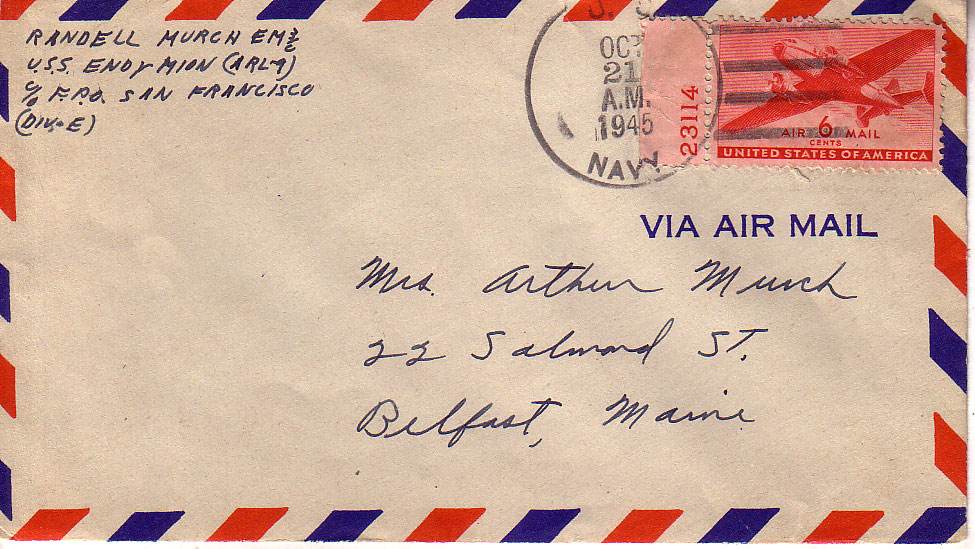 RANDELL MURCH EM 3/c
U.S.S. ENDYMION (ARL-9)
c/o F.P.O. SAN FRANCISCO
(DIV-E)
OCT
21
A.M.
1945
NAVY
23114
AIR 6 MAIL
CENTS
UNITED STATES OF AMERICA
VIA AIR MAIL
Mrs. Arthur Murch
22 Salmond St.
Belfast, Maine